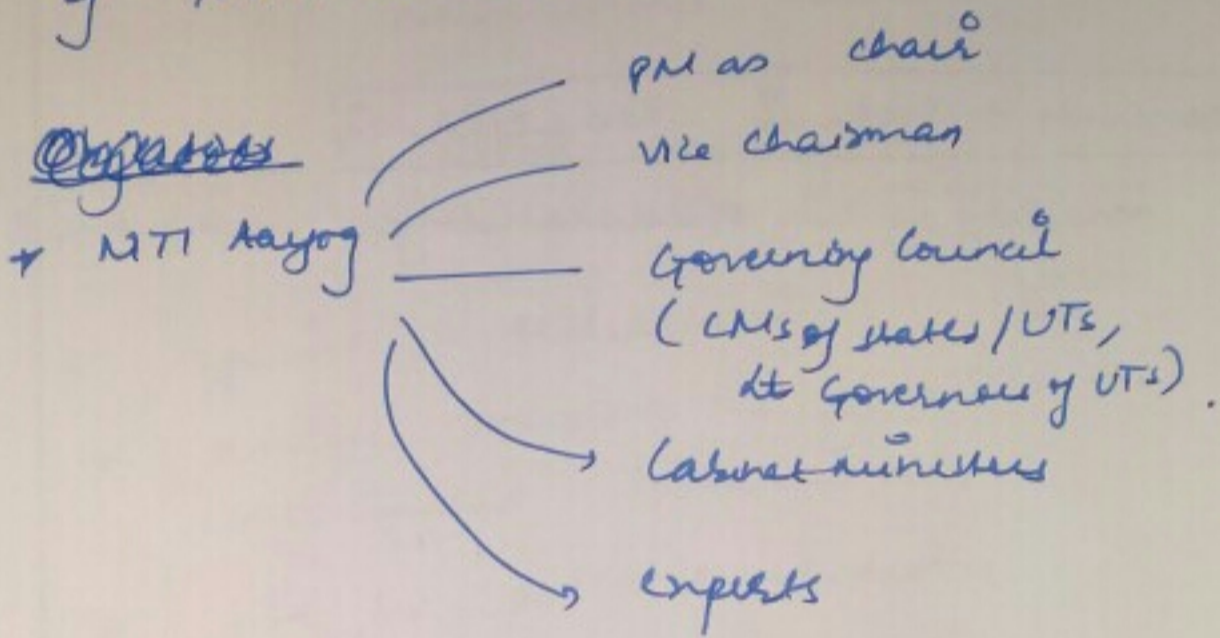 PM as chair
Vice chairman
* NITI Aayog
Governing Council
(CMs of states/UTs,
Lt Governors of UTs).
Cabinet ministers
experts